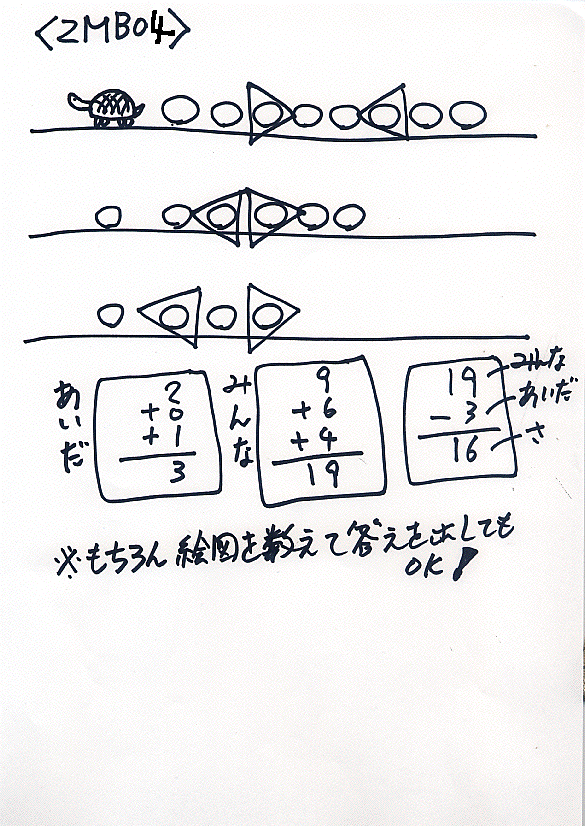 <2MB04>
あいだ
2
+0
+1
3
みんな
9
+6
+4
19
19 みんな
-3 あいだ
16 さ
※もちろん絵図を数えて答えを出しても
OK!